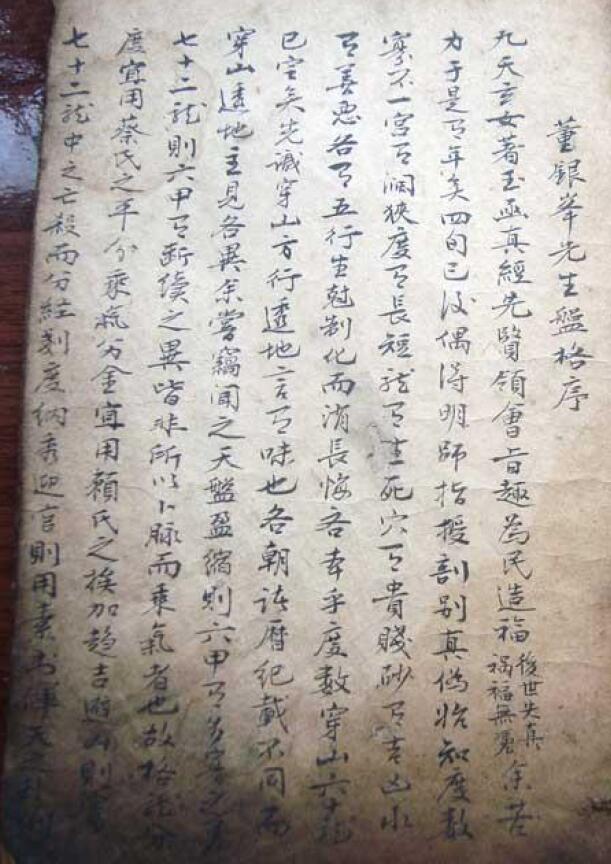 董銀峯先生盤格序
九天玄女著玉函真經先賢領會旨趣為民造福後世失真禍福無憑余苦
力于是有年矣四旬已後偶得明師指援剖别真僞始知度数
寥不一宫有濶狹度有長短龍有生死穴有貴賤砂有吉凶水
有善恶各有五行生尅制化而消長悔吝本乎度数穿山六十龍
已定矣先誠穿山方行透地言有味也各朝誌曆纪載不同而
穿山透地主見各異余嘗竊闻之天盤盈縮則六甲有多寡之
七十二龍則六甲有断續之異皆非所以卜脉而乘氣者也故格龍分
度宜用蔡氏之平分乘氣分金宜用賴氏之挨加趋吉避凶則
七十二龍中之亡殺而分經刻度納秀迎官則用素书渾天之